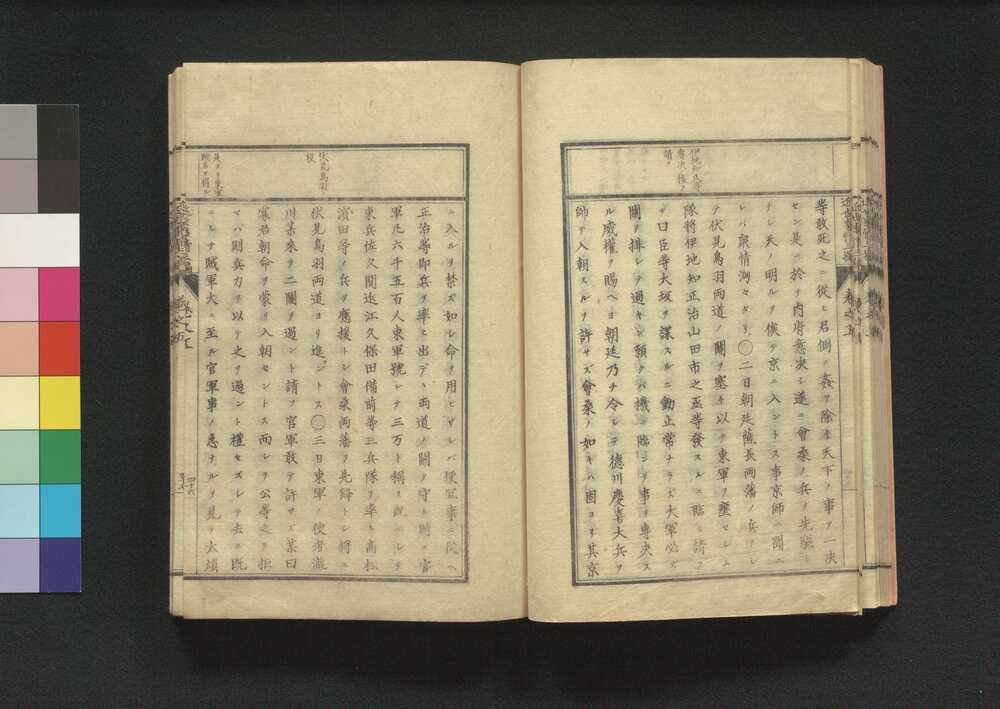 伊地知氏等
専決ノ権ヲ
請フ
等敢死之ニ從ヒ君側ノ姦ヲ除キ天下ノ事ヲ一决
セン是ニ於テ内府意決シ遂ニ會桑ノ兵ヲ先驅ト
ナシ天ノ明ルヲ俟テ京ニ入ントス事京師ニ聞ユ
レバ衆情洶々タリ〇二日朝廷薩長両藩ノ兵ヲシ
テ伏見鳥羽両道ノ關ヲ塞キ以テ東軍ヲ壅セシム
隊將伊地知正治山田市之亟等發スルニ臨ミ請フ
テ曰臣等大坂ヲ諜スルニ動止常ナラズ大軍必ズ
關ヲ排シテ過キン願クバ機ニ臨ミテ事ヲ専決ス
ル威權ヲ賜ヘヨ朝廷乃チ令シテ德川慶喜大兵ヲ
師テ入朝スルヲ許サズ會桑ノ如キハ固ヨリ其京
伏見鳥羽ノ
役
是ヨリ東軍
ニ入ルヲ禁ズ如シ命ヲ用ヒザレバ便宜事ニ從ヘ
正治等即兵ヲ率ヒ出デヽ両道ノ關ヲ守ル時ニ官
軍凡六千五百人東軍號シテ三万ト稱ス既ニシテ
東兵佐久間近江久保田備前等三兵隊ヲ率ヒ高松
濱田等ノ兵ヲ應援トシ會桑両藩ヲ先鋒トシ將ニ
伏見鳥羽両道ヨリ進マントス〇三日東軍ノ使者瀧
川某来ヲ二關ヲ過ント請フ官軍敢テ許サズ某曰
寡君朝命ヲ蒙リ入朝セントス而シテ公等之ヲ拒
マバ則兵力ヲ以テ之ヲ過ント禮セズシテ去ル既
ニシテ賊軍大ニ至ル官軍事ノ急ナルヲ見テ大煩